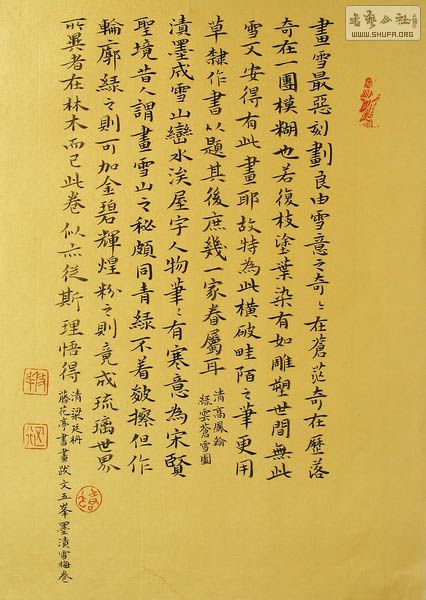 畫雪最惡刻劃良由雪意之奇々在蒼茫奇在歷落
奇在一團模糊也若復枝塗葉染有如雕塑世間無此
雪又安得有此畫耶故特為此橫破畦陌之筆更用
草隸作書以題其後庶幾一家眷屬耳
清高鳳翰
緑雲蒼雪圖
漬墨成雪山巒水涘屋宇人物筆々有寒意為宋賢
聖境昔人謂畫雪山之秘頗同青綠不着皴擦但作
輪廓綠之則可加金碧輝煌粉之則竟成琉璃世界
所異者在林木而已此卷似亦從斯理悟得
清梁廷枏
藤花亭書畫跋文五峯墨漬雪梅卷
書藝公社
WWW.SHUFA.ORG